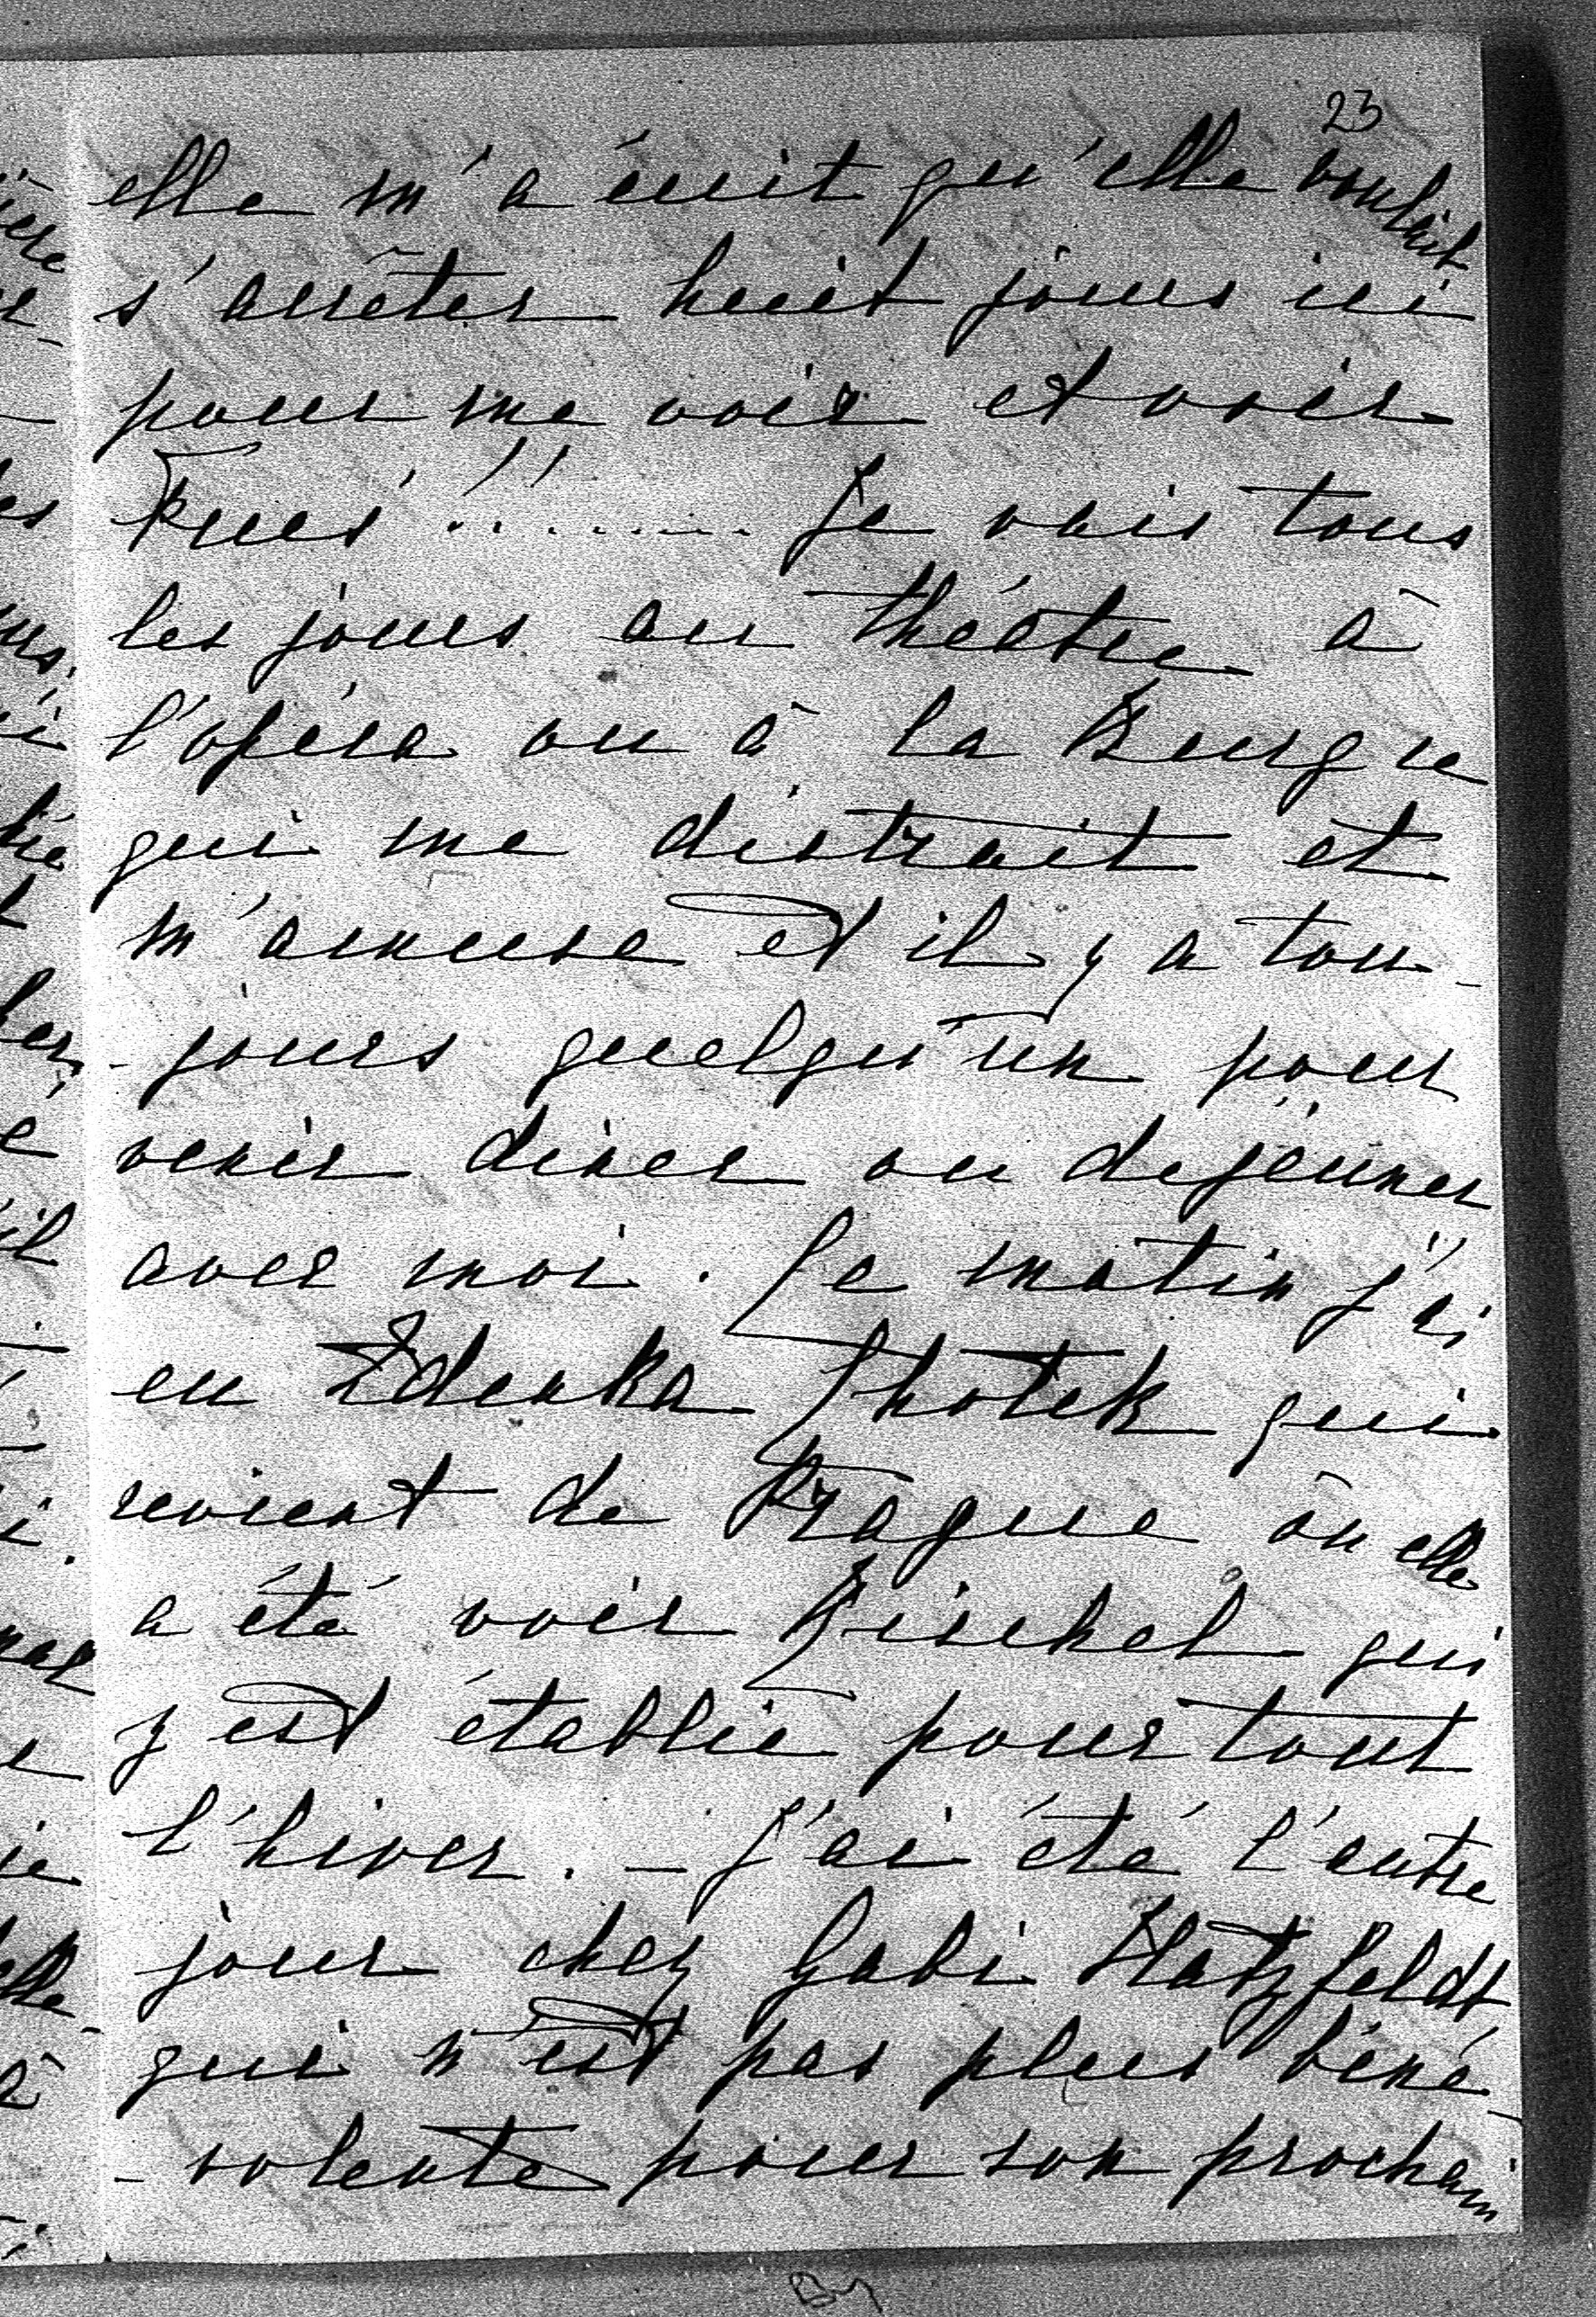 23
elle m'a écrit qu'elle voulait
s'arrêter huit jours ici
pour me voir et voir
!! ....... Je vais tous
les jours au théâtre à
l'opéra ou à la Burg ce
qui me distrait et
m'amuse et il y a tou-
-jours quelqu'un pour
venir diner ou dejeuner
avec moi. Ce matin j'ai
eu Zdenka Chotek qui
revient de Prague où elle
a été voir Zischel qui
y est établie pour tout
l'hiver. – J'ai été l'autre
jour chez Gabi Hatzfeldt
qui n'est pas plus béné
-volente pour son prochain